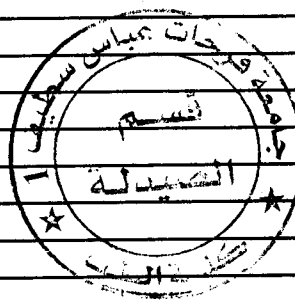 جامعة فرحات عباس سطيف 1
قسم
الصيدلة
كلية الطب